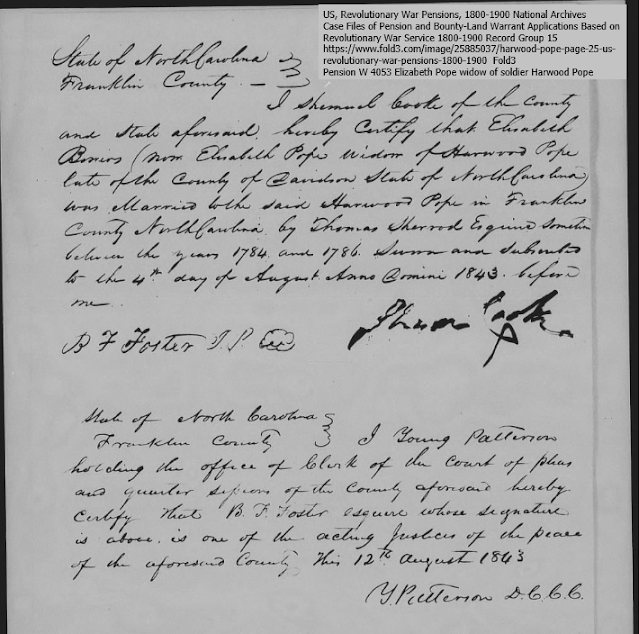 US, Revolutionary War Pensions, 1800-1900 National Archives
Case Files of Pension and Bounty-Land Warrant Applications Based on
Revolutionary War Service 1800-1900 Record Group 15
https://www.fold3.com/image/25885037/harwood-pope-page-25-us-
revolutionary-war-pensions-1800-1900 Fold3
Pension W 4053 Elizabeth Pope widow of soldier Harwood Pope
State of North Carolina
Franklin County
I Shemuel Cooke of the County
and State aforesaid, hereby Certify that Elisabeth
(now Elisabeth Pope widow of Harwood Pope
late of the County of Davidson State of North Carolina)
was Married to the said Harwood Pope in Franklin
County North Carolina by Thomas Sherrod Esquire Sometime
between the years 1784 and 1786. Sworn and Subscribed
to the 4th day of August Anno Domini 1843. before
me
B F Foster J. P.
State of North Carolina
Franklin County I Young Patterson
holding the office of Clerk of the Court of pleas
and quarter sessions of the County aforesaid hereby
Certify that B. F. Foster esquire whose signature
is above, is one of the acting Justices of the peace
of the aforesaid County this 12th August 1843
Y. Patterson D.C.C.C.